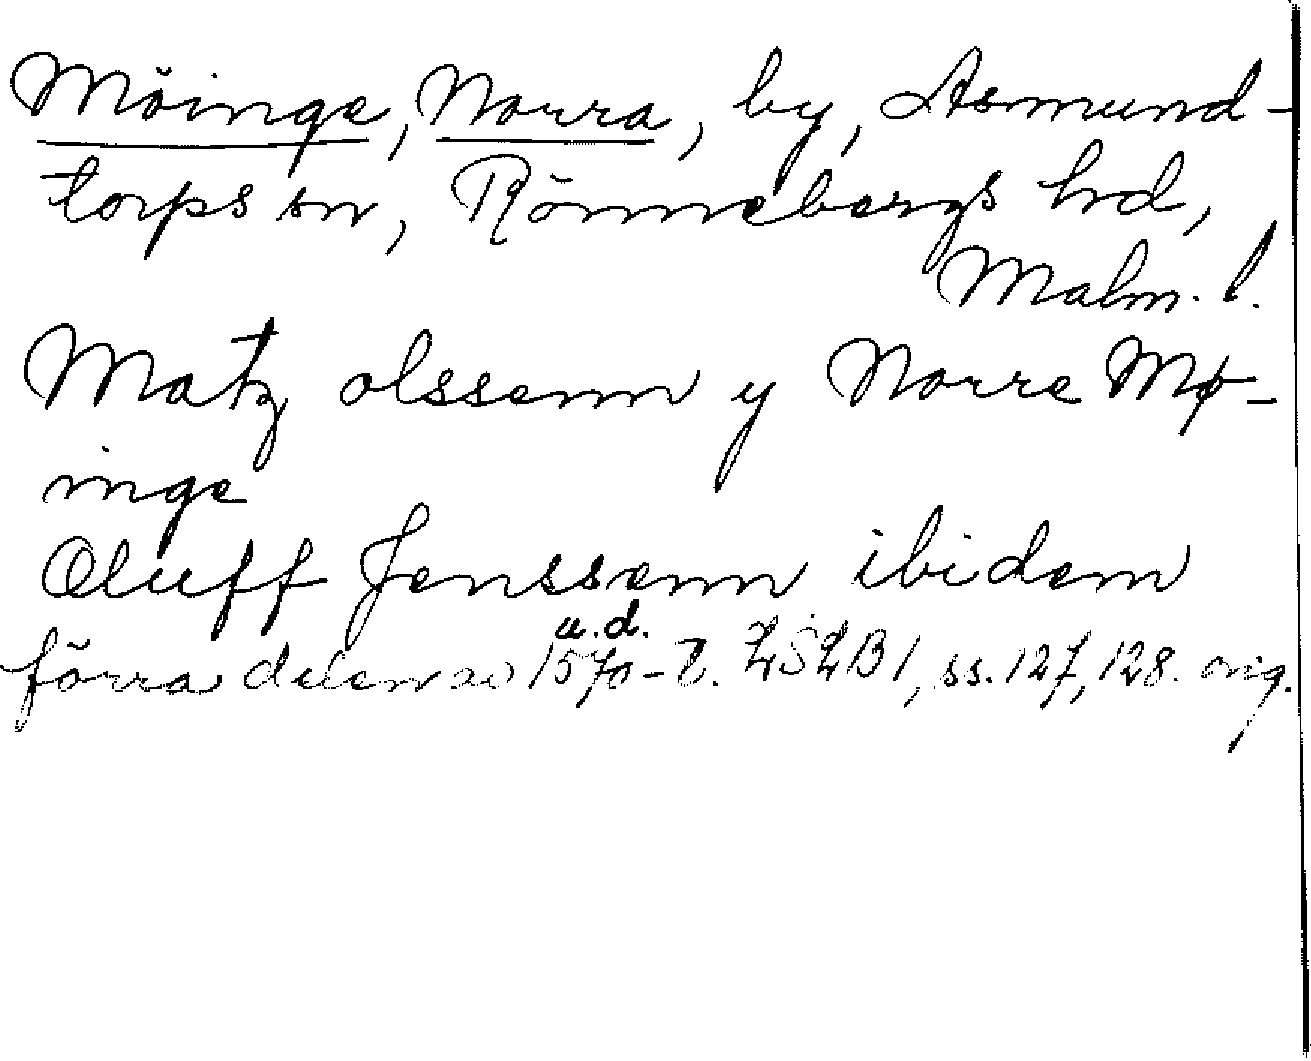 Möinge, Norra, by, Asmund-
torps sn, Rönnebergs hd,
Malm. l.
Matz olssenn y Norre Mø-
inge
Oluff Jenssenn ibidem
u.d.
förra delen av 1570-t. LSLB1, ss. 127, 128. orig.